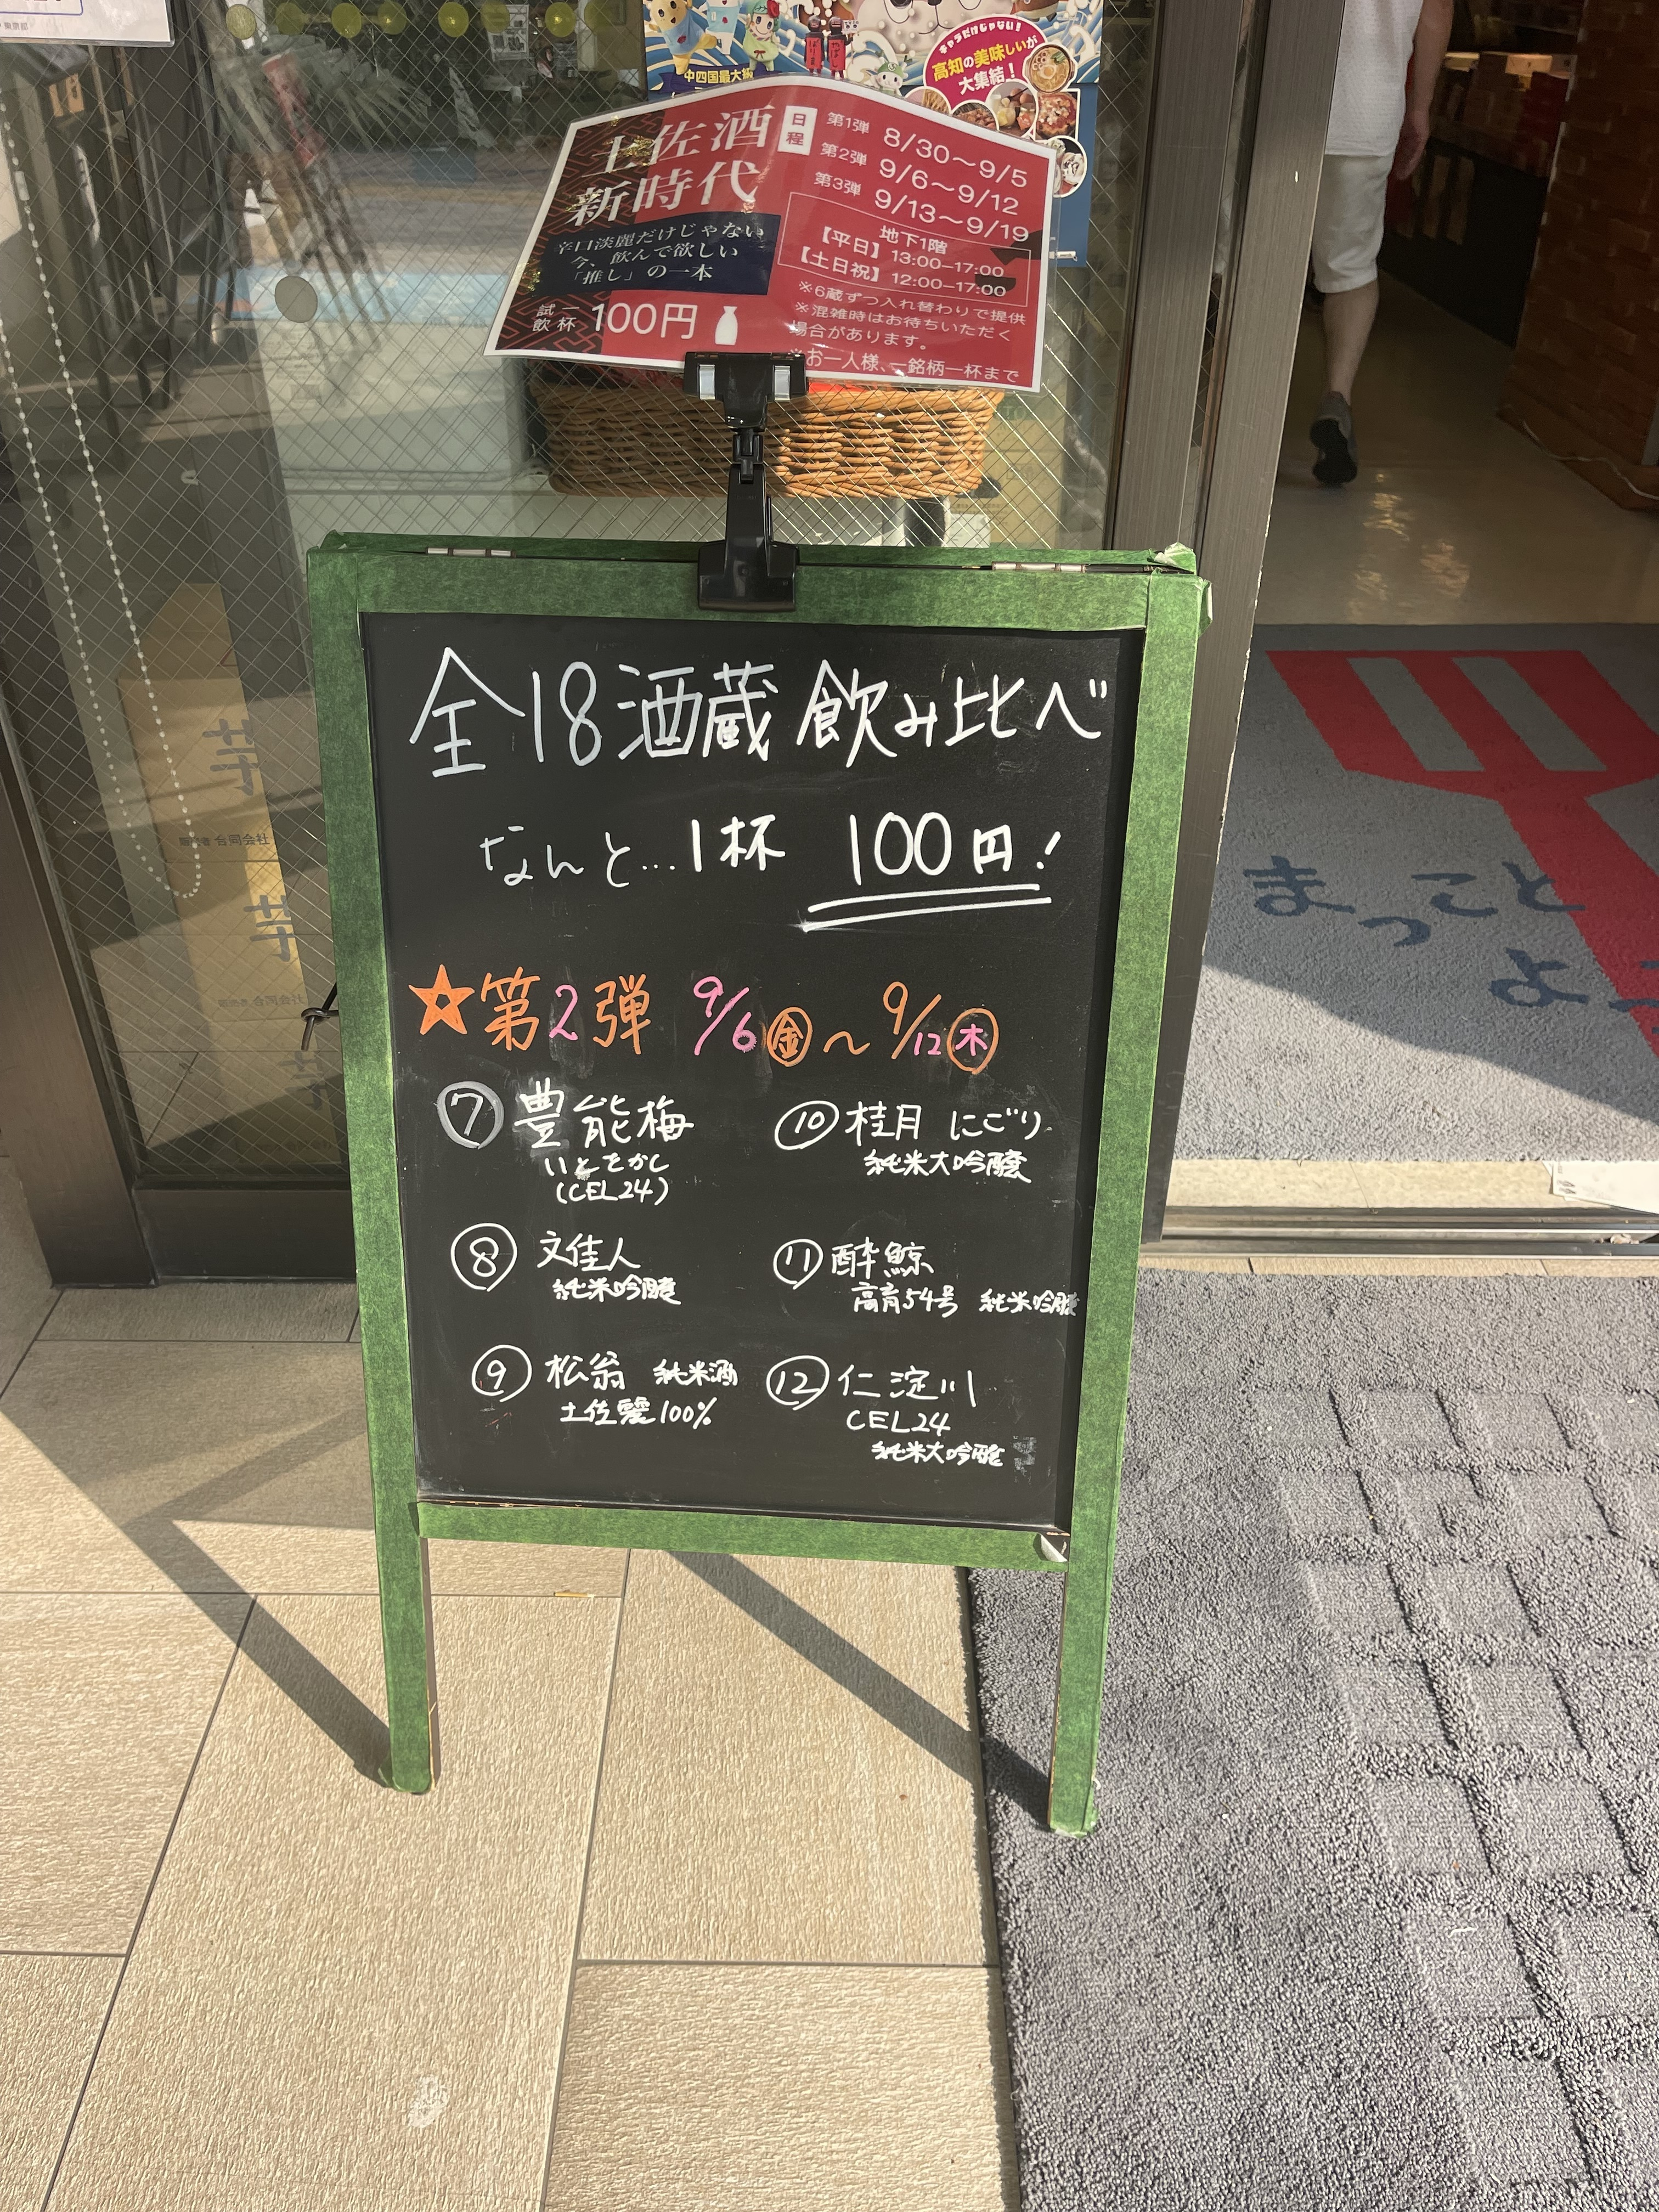 東京都
キャラだけじゃない!
高知の美味しいが
大集結!
中四国最大級
土佐酒
新時代
辛口淡麗だけじゃない
今、飲んで欲しい
「推し」の一本
試飲 杯 100円
日程
第1弾 8/30~9/5
第2弾 9/6~9/12
第3弾 9/13~9/19
地下1階
【平日】13:00-17:00
【土日祝】12:00-17:00
※6蔵ずつ入れ替わりで提供
※混雑時はお待ちいただく
場合があります。
※お一人様、一銘柄一杯まで
全18酒蔵 飲み比べ
なんと…1杯 100円!
☆第2弾 9/6㊎~9/12㊍
⑦ 豊能梅
いとをかし
(CEL24)
⑧ 文佳人
純米吟醸
⑨ 松翁 純米酒
土佐麗100%
⑩ 桂月 にごり
純米大吟醸
⑪ 酔鯨
高育54号 純米吟醸
⑫ 仁淀川
CEL24
純米大吟醸
芋
合同会社
芋
合同会社
まっこと
よ